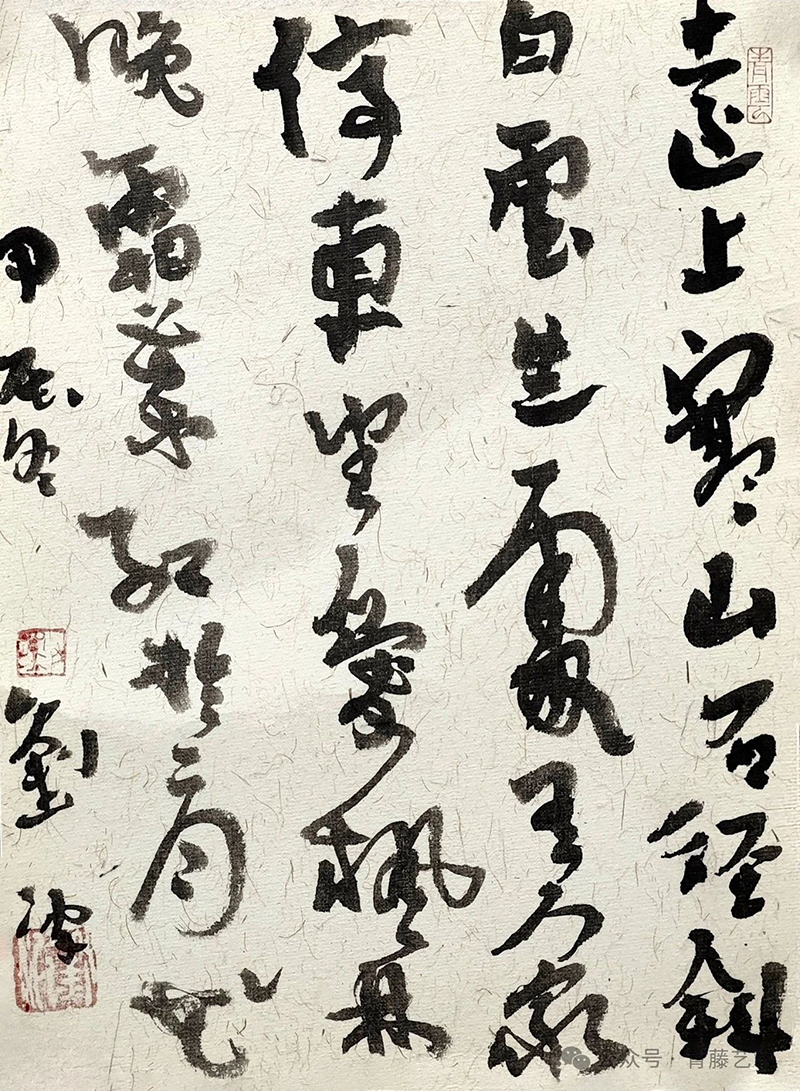 遠上寒山石徑斜
白雲生處有人家
停車坐愛楓林
晚霜葉紅於二月花
甲辰冬 劉
青雲
公众号·青藤艺